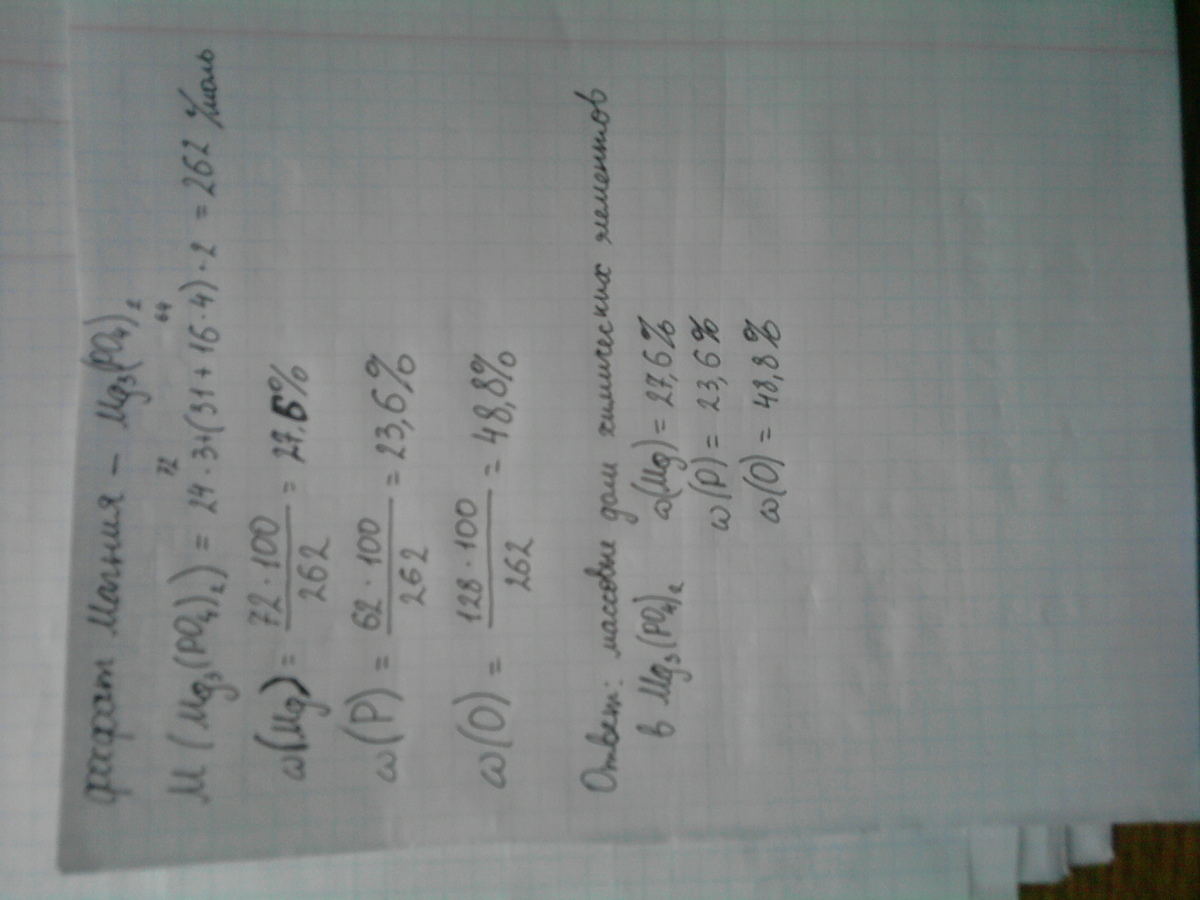 фосфат Магния – Mg₃(PO₄)₂
72 64
M (Mg₃(PO₄)₂) = 24 · 3+(31 + 16 · 4) · 2 = 262 г/моль
ω(Mg) = 72 · 100 / 262 = 27,6%
ω(P) = 62 · 100 / 262 = 23,6%
ω(O) = 128 · 100 / 262 = 48,8%
Ответ: массовые доли химических элементов
в Mg₃(PO₄)₂ ω(Mg) = 27,6%
ω(P) = 23,6%
ω(O) = 48,8%